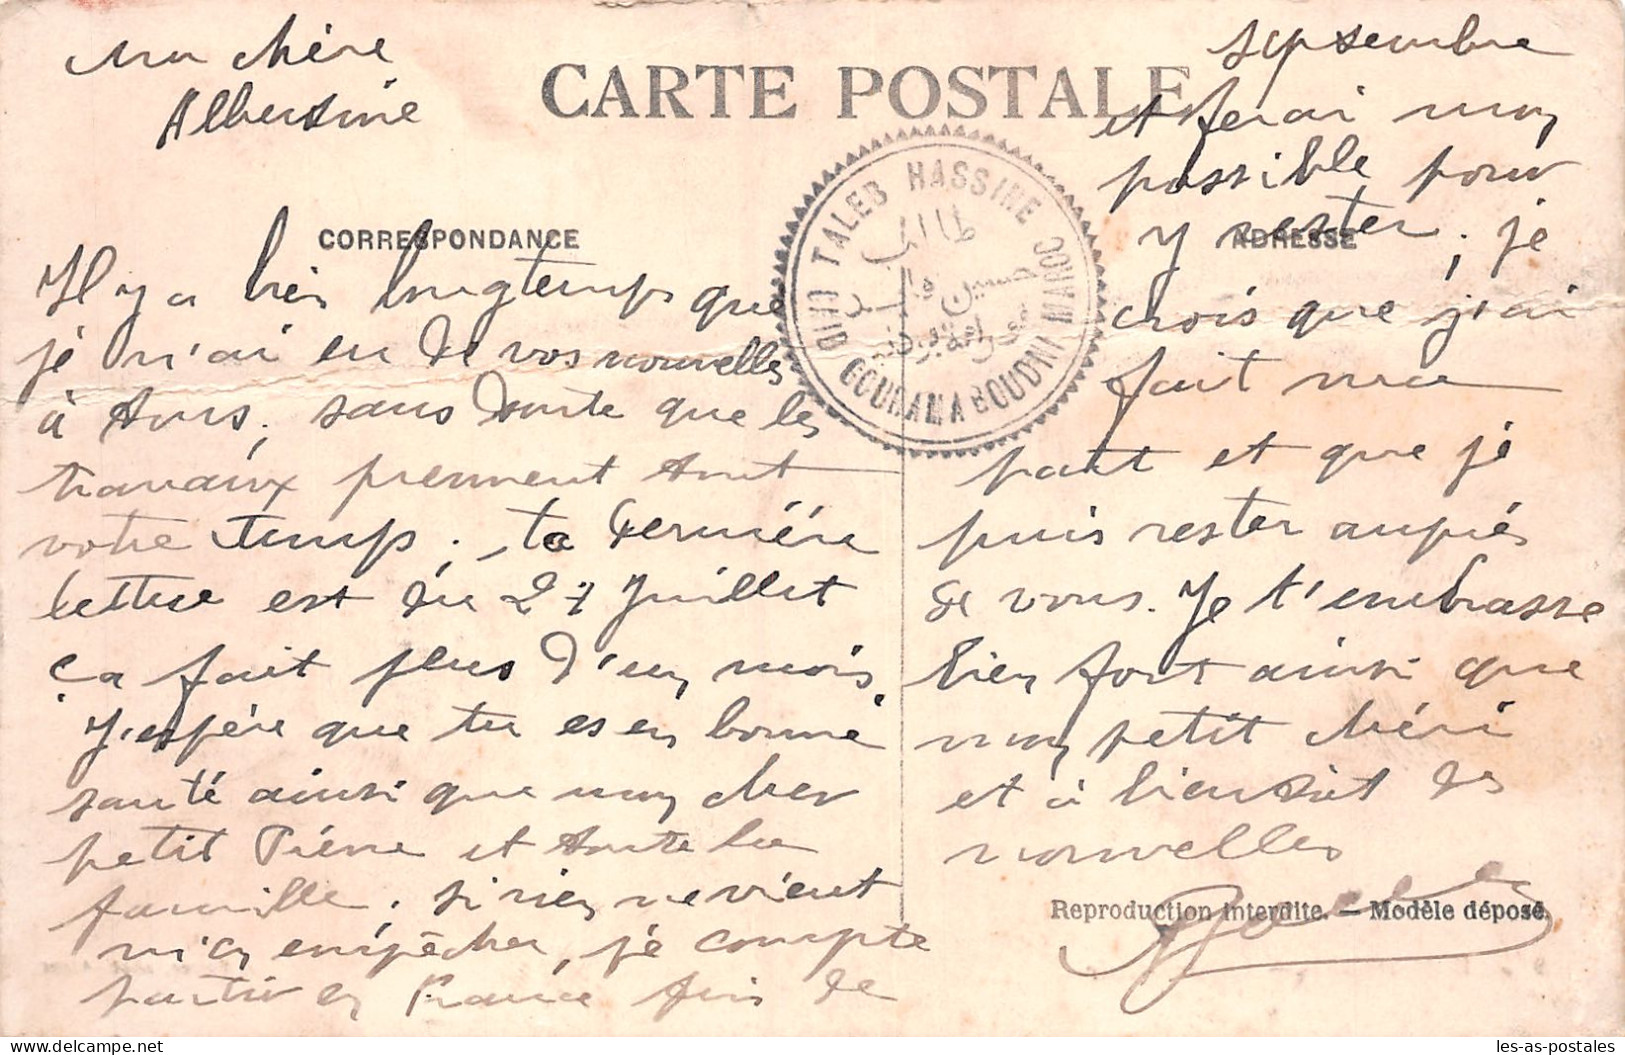 Ma chère
Albertine
CARTE POSTALE
CORRESPONDANCE
Il y a très longtemps que
je n'ai eu de vos nouvelles
à tous, sans doute que les
travaux prennent tout
votre temps. ta dernière
lettre est du 27 Juillet
ça fait plus d'un mois.
J'espère que tu es en bonne
santé ainsi que mon cher
petit Pierre et toute la
famille. si rien ne vient
m'en empêcher, je compte
partir en France fin de
septembre
et ferai mon
possible pour
y rester, je
ADRESSE
crois que j'ai
fait ma
part et que je
puis rester auprès
de vous. Je t'embrasse
bien fort ainsi que
mon petit chéri
et à bientôt des
nouvelles
TALEB HASSINE
GOURAMA BOUDNIB MAROC
طالب
حسين
Reproduction interdite. — Modèle déposé.
les-as-postales.com
les-as-postales